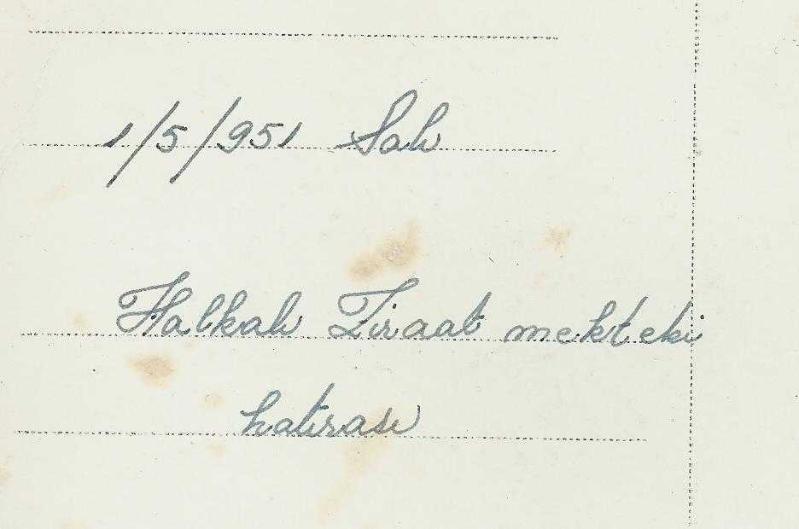 1/5/951 Salı
Halkalı Ziraat mektebi
hatırası